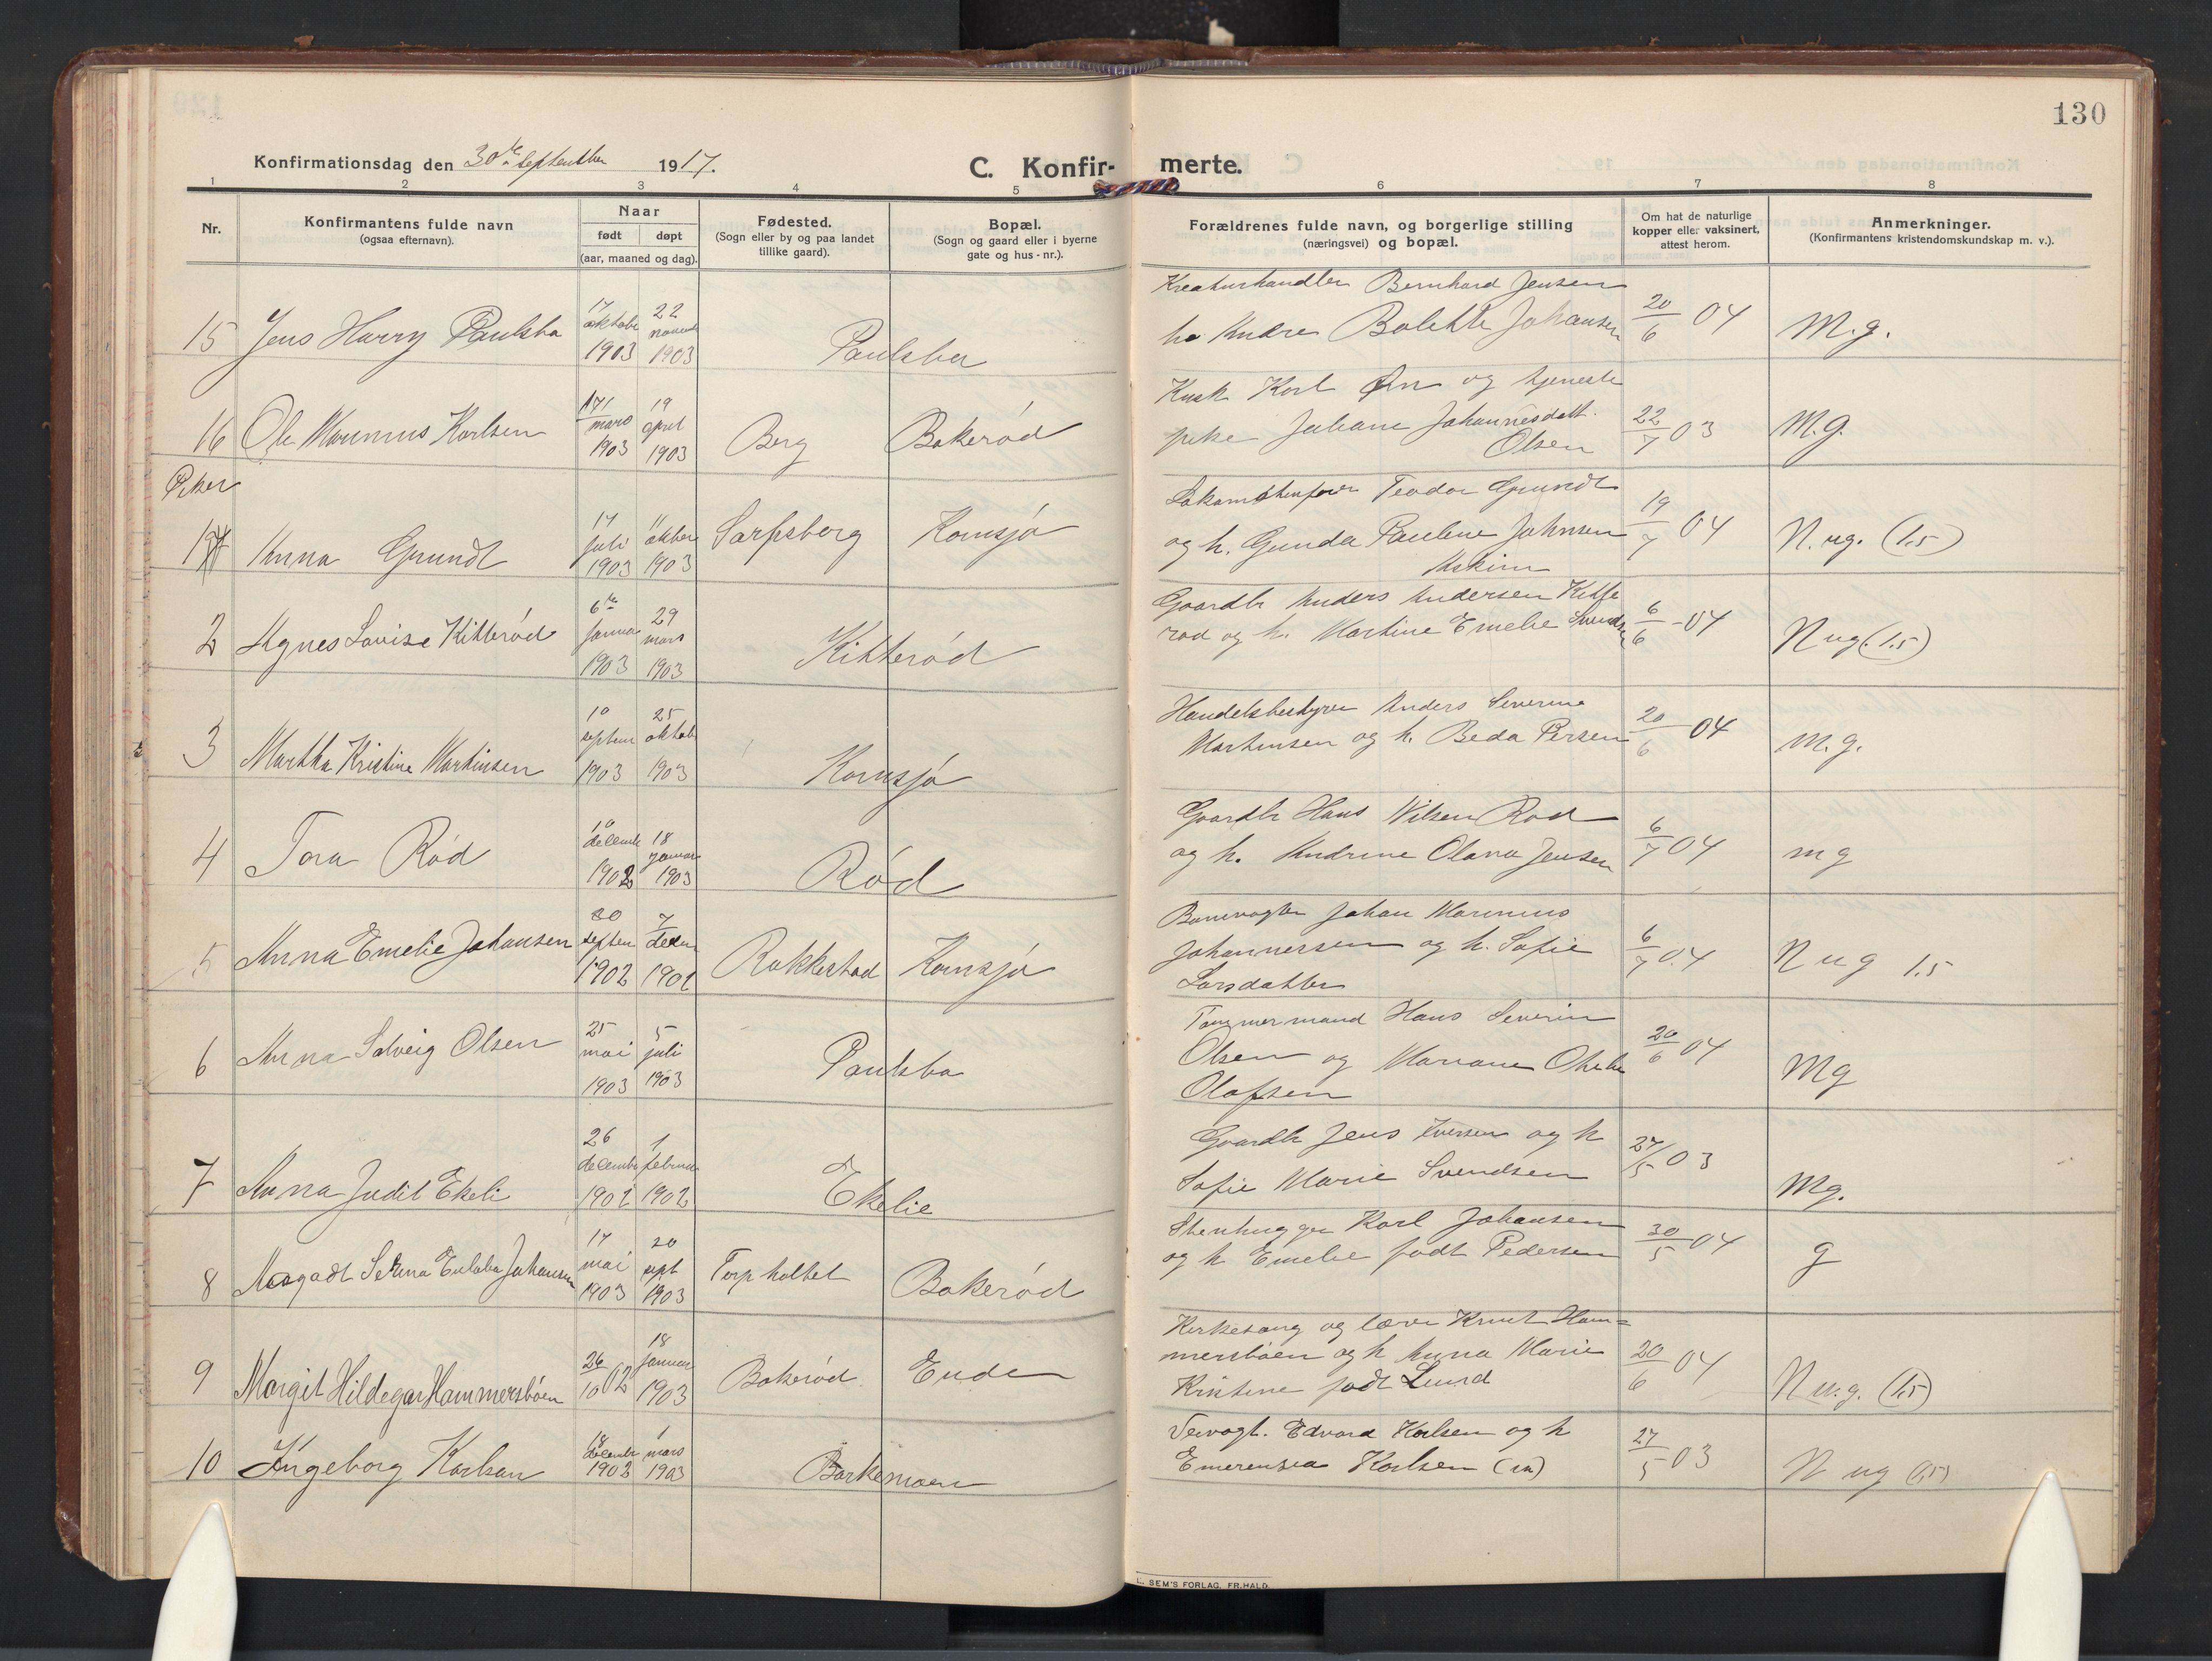 130
Konfirmationsdag den 30te September 1917.
C. Konfir- merte.
1 2 3 4 5 6 7 8
Nr.
Konfirmantens fulde navn
(ogsaa efternavn).
Naar
født døpt
(aar, maaned og dag).
Fødested.
(Sogn eller by og paa landet
tillike gaard).
Bopæl.
(Sogn og gaard eller i byerne
gate og hus-nr.).
Forældrenes fulde navn, og borgerlige stilling
(næringsvei) og bopæl.
Om hat de naturlige
kopper eller vaksinert,
attest herom.
Anmerkninger.
(Konfirmantens kristendomskundskap m. v.).
15 Jens Harry Paulsbo
17 oktobe 1903
22 novemb 1903
Paulsbo
Kreaturhandler Bernhard Jensen
Bolette Johansen
20/6 04
M.g.
16 Ole Marinius Karlsen
17 mars 1903
19 april 1903
Berg
Bakerød
Kusk Karl Øn og tjeneste
pike Juliane Johannesdatt.
Olsen
22/7 03
M.g.
Piker
1 Anna Grundt
17 juli 1903
11 oktober 1903
Sarpsborg
Kornsjø
Lokomotivfører Teodor Grundt
og h. Gunda Pauline Johnsen
Askim
19/7 04
N. ug. (1.5)
2 Agnes Lovise Kitterød
6te Januar 1903
29 mars 1903
Kitterød
Gaardbr Anders Andersen Kitte
rød og h. Martine Emelie Svendsen
6/6 - 04
N ug (1.5)
3 Martha Kristine Martinsen
10 septem 1903
25 oktob 1903
Kornsjø
Handelsbestyrer Anders Severine
Martinsen og h. Beda Persen
20/6 04
m.g.
4 Tora Rød
10 decemb 1902
18 Januar 1903
Rød
Gaardbr Hans Nilsen Rød
og h. Andrine Olava Jensen
6/7 04
mg
5 Anna Emelie Johansen
30 septem 1902
7 decem 1902
Rakkestad
Kornsjø
Banevogter Johan Marinius
Johannessen og h. Sofie
Larsdatter
6/7 04
N ug 1.5
6 Anna Solveig Olsen
25 mai 1903
5 juli 1903
Paulsbo
Tømmermand Hans Severin
Olsen og Mariane
Olafsen
20/6 04
Mg
7 Anna Judit Ekeli
26 decembe 1902
1 februar 1902
Ekelie
Gaardbr Jens Iversen og h
Sofie Marie Svendsen
27/5 03
Mg.
8 Johansen
17 mai 1903
20 sept 1903
Torpholtet
Bakerød
Stenhugger Karl Johansen
og h Emelie født Pedersen
30/5 04
g
9 Margit Hildegar Hammersbøen
26/10 02
18 januar 1903
Bakerød
Ende
Kirkesang og lærer Knut Ham=
mersbøen og h Anna Marie
Kristine født Lund
20/6 04
N u.g. (1.5)
10 Ingeborg Karlsen
18 decembr 1902
1 mars 1903
Barkemoen
Veivogt. Edvard Karlsen og h
Emerensea Karlsen
27/5 03
N ug (1.5)
SEM'S FORLAG, FR.HALD.